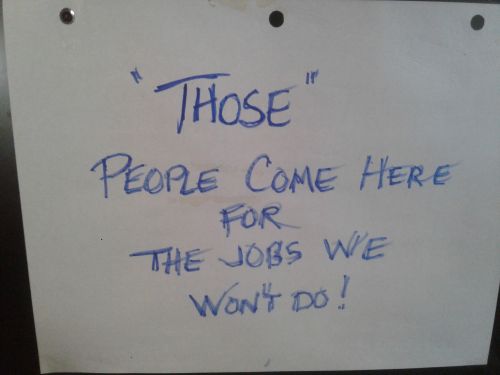 "THOSE"
PEOPLE COME HERE
FOR
THE JOBS WE
WON'T DO!